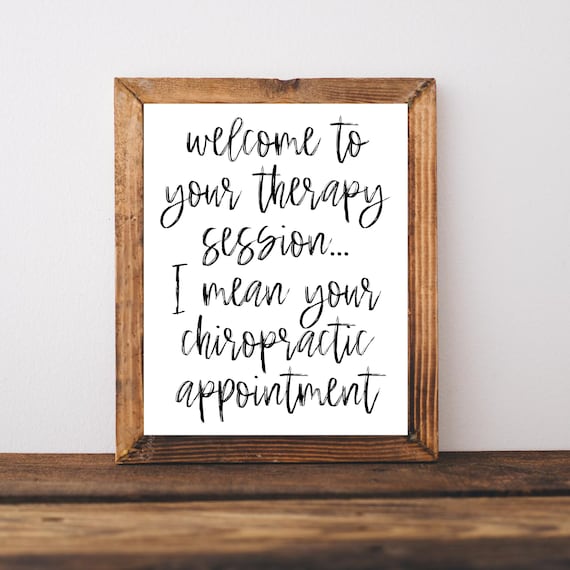 welcome to
your therapy
session...
I mean your
chiropractic
appointment